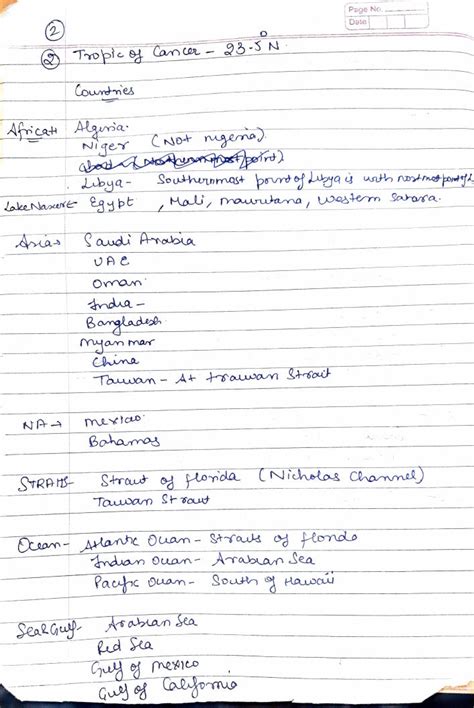 Page No.
Date
②
② Tropic of Cancer - 23.5°N
Countries
Africa→ Algeria.
Niger (Not nigeria)
(Northernmost point)
Libya- Southernmost point of Libya is with
Egypt, Mali, mauritana, western sahara.
Asia→ Saudi Arabia
UAE
Oman
India -
Bangladesh
Myanmar
China
Taiwan - At Taiwan Strait
NA → Mexico
Bahamas
STRAITS- Strait of florida (Nicholas Channel)
Taiwan Strait
Ocean- Atlantic Ocean - Straits of florida
Indian Ocean - Arabian Sea
Pacific Ocean - South of Hawaii
Sea&Gulf- Arabian Sea
Red Sea
Gulf of mexico
Gulf of California